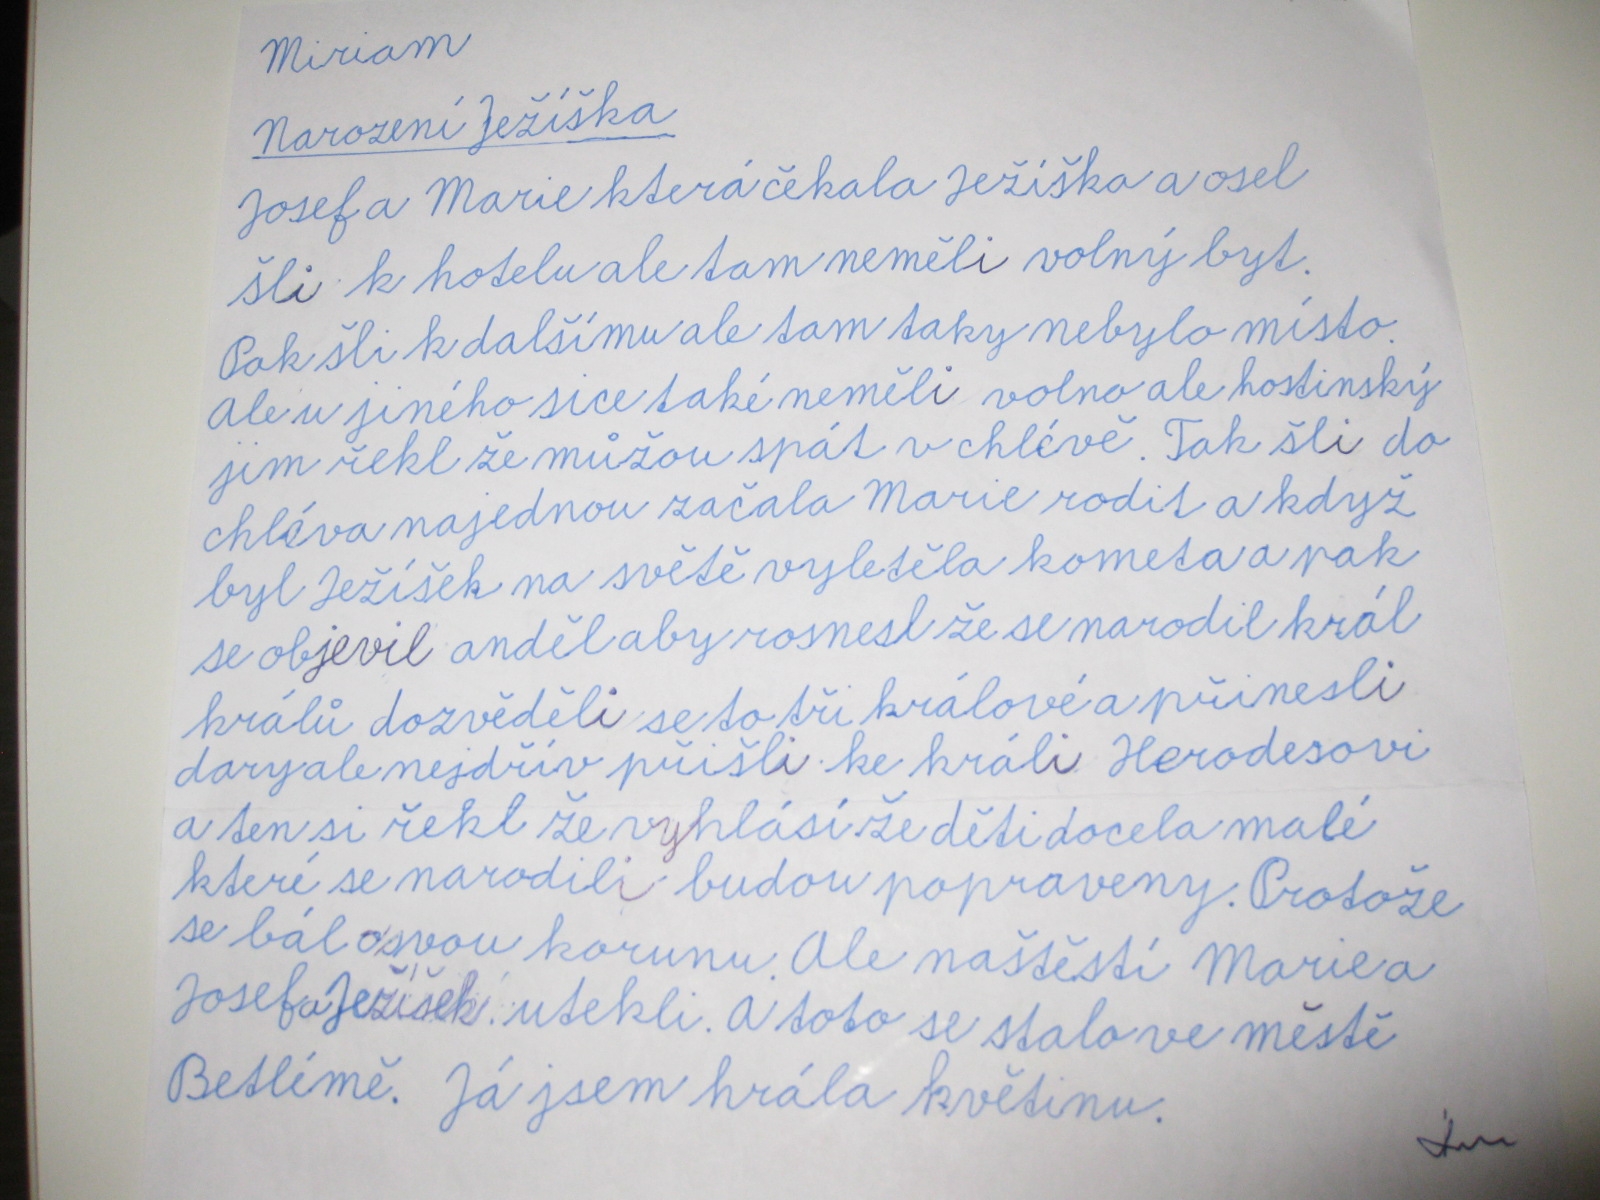 Miriam
Narození Ježíška
Josef a Marie která čekala Ježíška a osel
šli k hotelu ale tam neměli volný byt.
Pak šli k dalšímu ale tam taky nebylo místo.
Ale u jiného sice také neměli volno ale hostinský
jim řekl že můžou spát v chlévě. Tak šli do
chléva najednou začala Marie rodit a když
byl Ježíšek na světě vyletěla kometa a pak
se objevil anděl aby rosnesl že se narodil král
králů dozvěděli se to tři králové a přinesli
dary ale nejdřív přišli ke králi Herodesovi
a ten si řekl že vyhlásí že děti docela malé
které se narodili budou popraveny. Protože
se bál o svou korunu. Ale naštěstí Marie a
Josef a Ježíšek utekli. A toto se stalo ve městě
Betlémě. Já jsem hrála květinu.